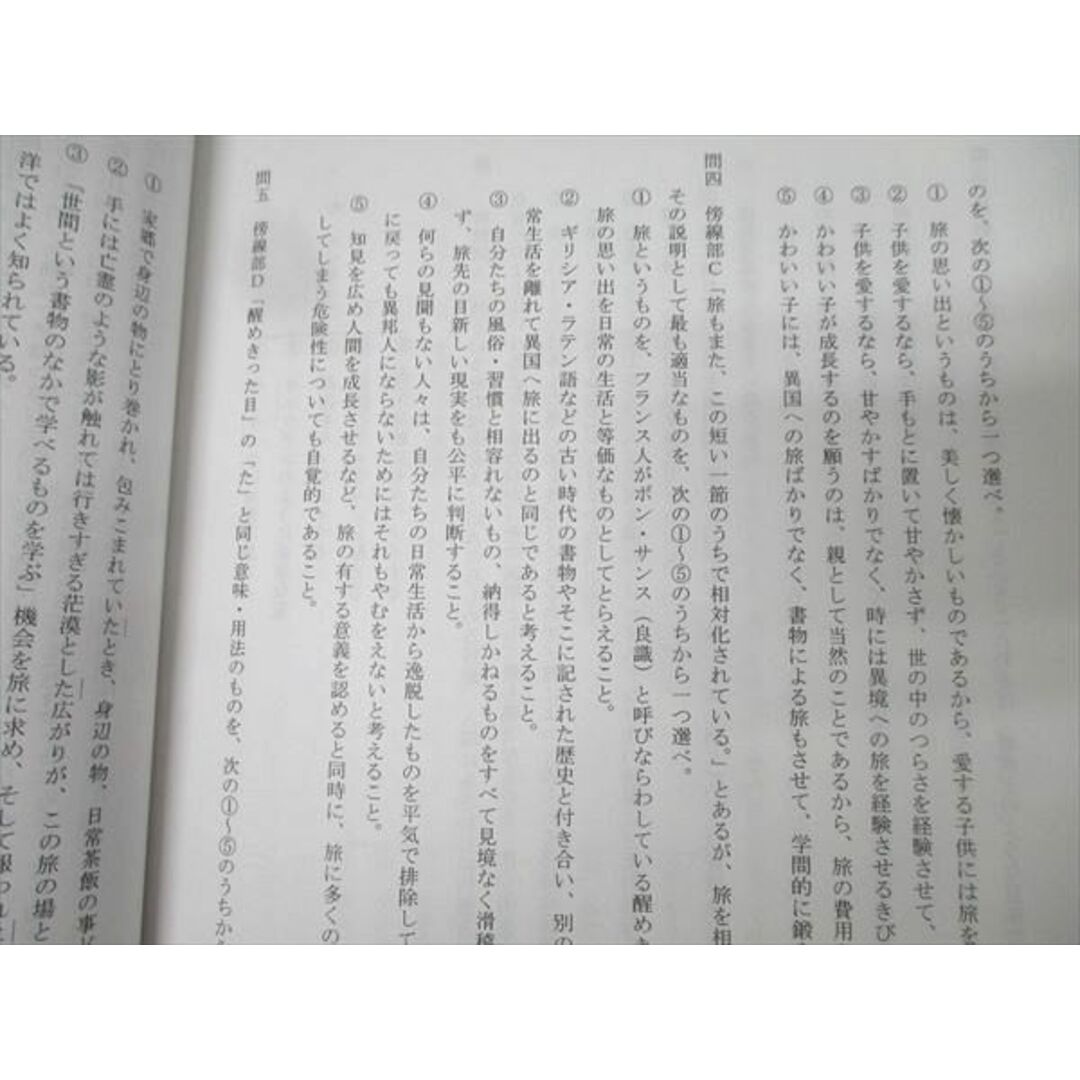 のを、次の①～⑤のうちから一つ選べ。
① 旅の思い出というものは、美しく懐かしいものであるから、愛する子供には旅を
② 子供を愛するなら、手もとに置いて甘やかさず、世の中のつらさを経験させて、
③ 子供を愛するなら、甘やかすばかりでなく、時には異境への旅を経験させるきび
④ かわいい子が成長するのを願うのは、親として当然のことであるから、旅の費用
⑤ かわいい子には、異国への旅ばかりでなく、書物による旅もさせて、学問的に鍛
問四 傍線部C「旅もまた、この短い一節のうちで相対化されている。」とあるが、旅を相
その説明として最も適当なものを、次の①～⑤のうちから一つ選べ。
① 旅というものを、フランス人がボン・サンス（良識）と呼びならわしている醒め
旅の思い出を日常の生活と等価なものとしてとらえること。
② ギリシア・ラテン語などの古い時代の書物やそこに記された歴史と付き合い、別の
常生活を離れて異国へ旅に出るのと同じであると考えること。
③ 自分たちの風俗・習慣と相容れないもの、納得しかねるものをすべて見境なく滑稽
ず、旅先の目新しい現実をも公平に判断すること。
④ 何らの見聞もない人々は、自分たちの日常生活から逸脱したものを平気で排除して
に戻っても異邦人にならないためにはそれもやむをえないと考えること。
⑤ 知見を広め人間を成長させるなど、旅の有する意義を認めると同時に、旅に多くの
してしまう危険性についても自覚的であること。
問五 傍線部D「醒めきった目」の「た」と同じ意味・用法のものを、次の①～⑤のうちから
① 家郷で身辺の物にとり巻かれ、包みこまれていたとき、身辺の物、日常茶飯の事
② 手には亡霊のような影が触れては行きすぎる茫漠とした広がりが、この旅の場と
③ 「世間という書物のなかで学べるものを学ぶ」機会を旅に求め、そして報われた
洋ではよく知られている。